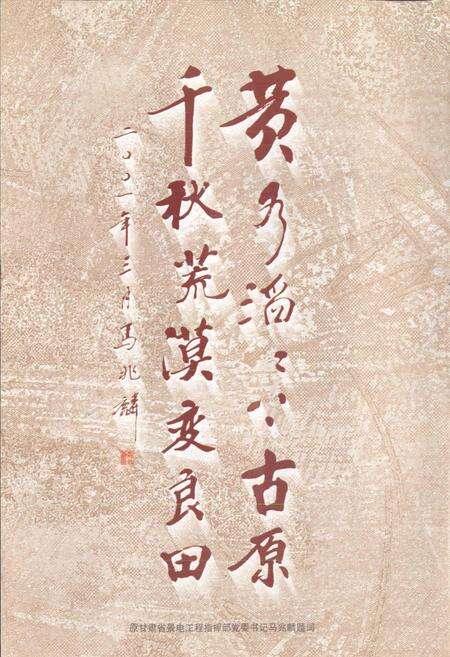 黄水滔滔上古原
千秋荒漠变良田
二〇〇一年三月马兆麟
原甘肃省景电工程指挥部党委书记马兆麟题词